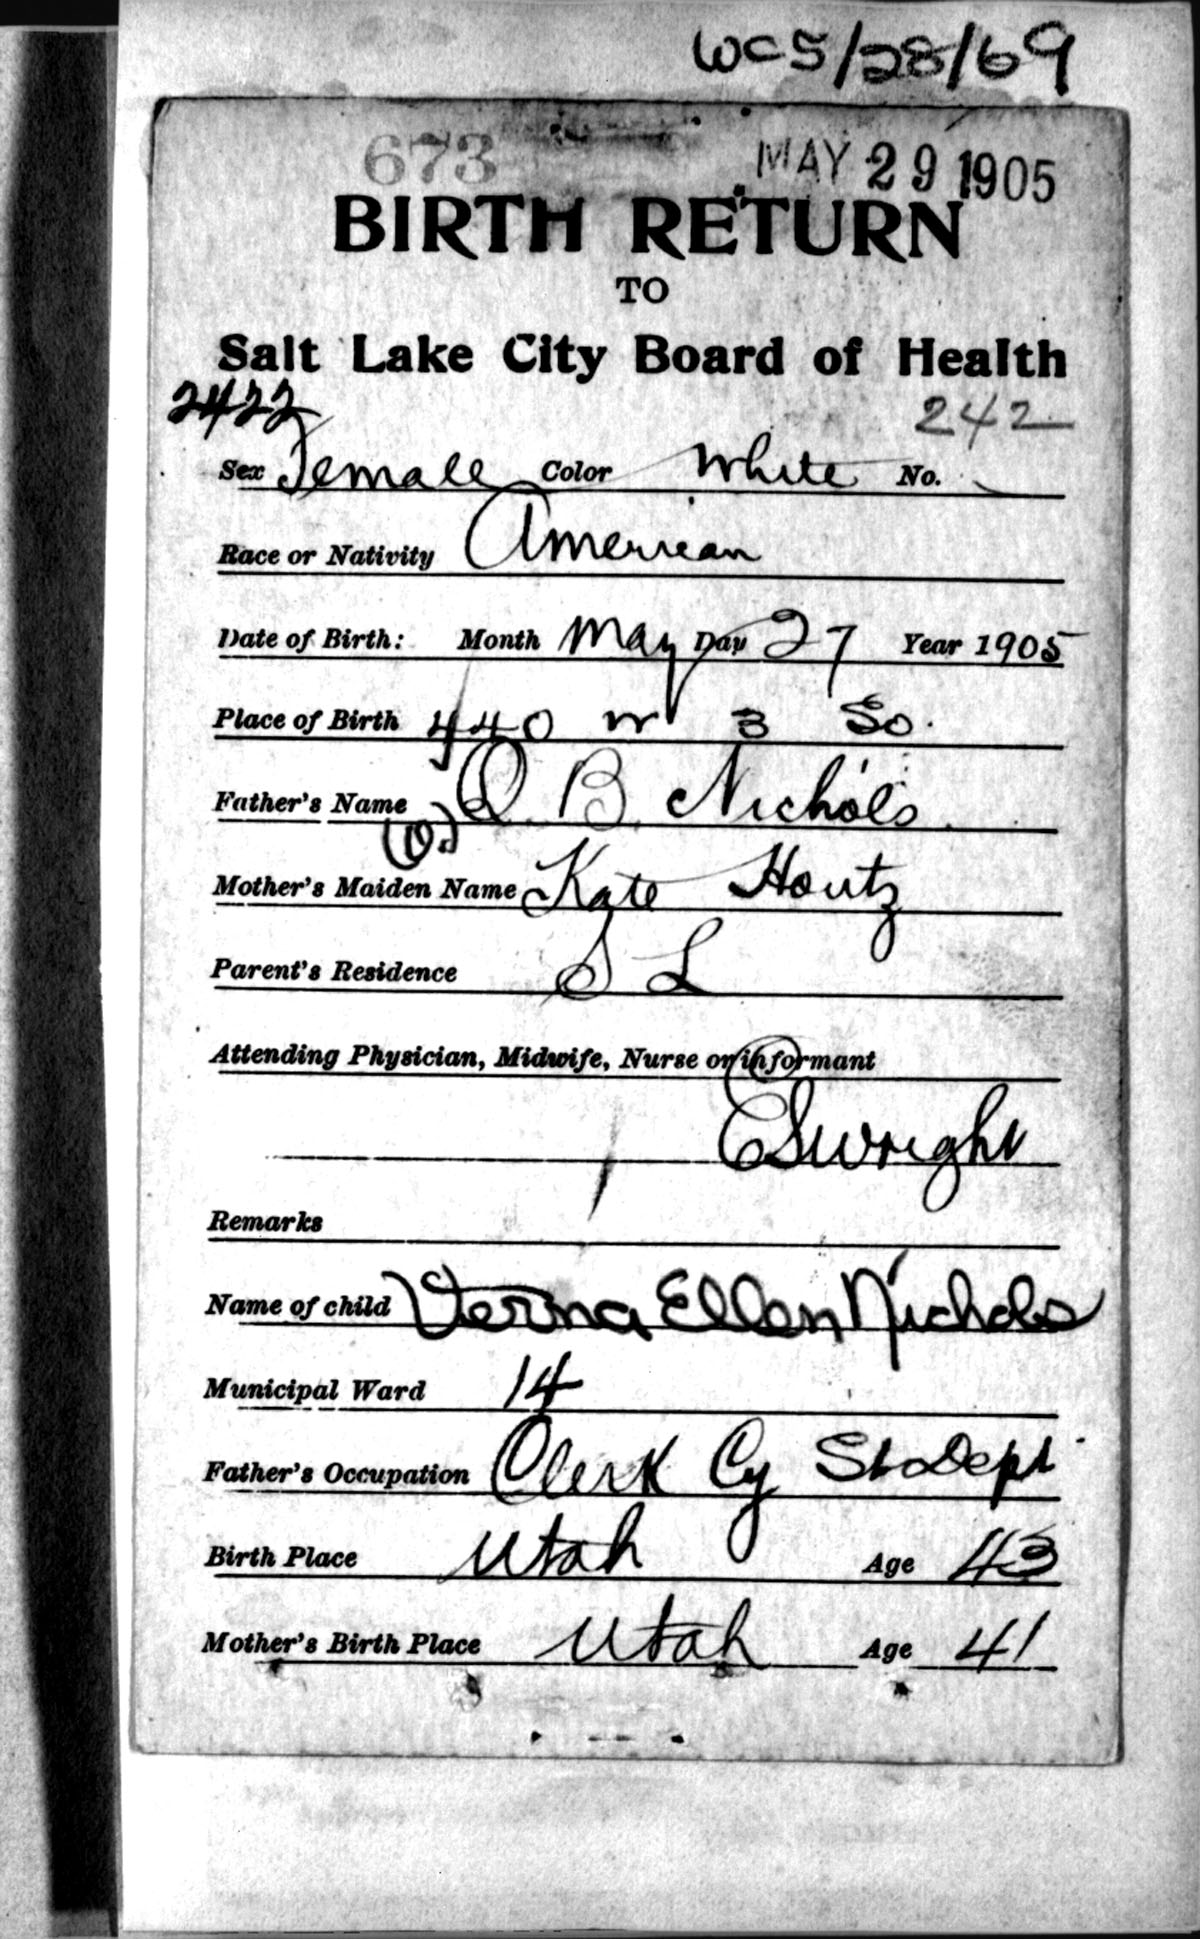 WC5/28/69
673 MAY 29 1905
BIRTH RETURN
TO
Salt Lake City Board of Health
2422 242
Sex Female Color White No.
Race or Nativity American
Date of Birth: Month May Day 27 Year 1905
Place of Birth 440 W 3 So.
Father's Name O. B. Nichols
(O.)
Mother's Maiden Name Kate Houtz
Parent's Residence S L
Attending Physician, Midwife, Nurse or informant
E S Wright
Remarks
Name of child Verna Ellen Nichols
Municipal Ward 14
Father's Occupation Clerk Cy St Dept
Birth Place Utah Age 43
Mother's Birth Place Utah Age 41